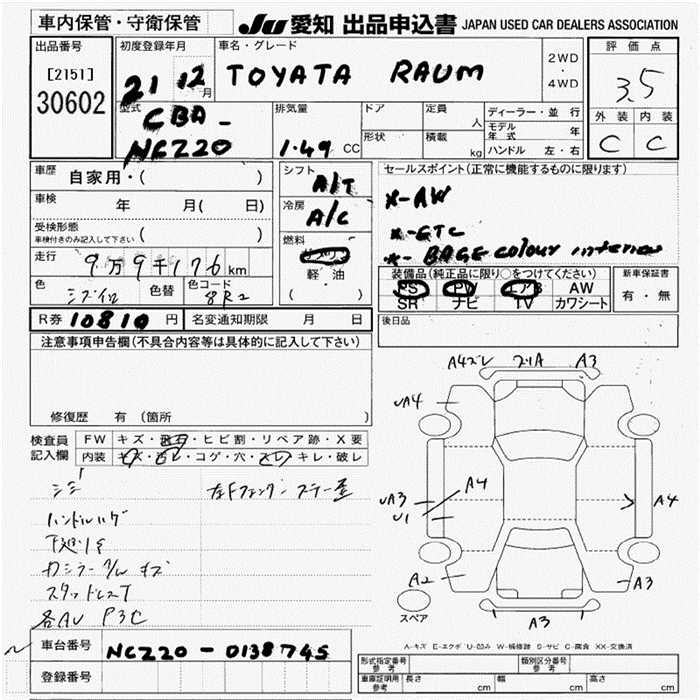 車内保管・守衛保管
JU 愛知 出品申込書 JAPAN USED CAR DEALERS ASSOCIATION
出品番号
[2151]
30602
初度登録年月
21 12月
車名・グレード
TOYATA RAUM
2WD
・
4WD
評価点
3.5
外装 内装
C C
型式
CBA-
NCZ20
排気量
1.49 CC
ドア
形状
定員 人
積載 kg
ディーラー・並行
モデル年式 年
ハンドル 左・右
車歴 自家用・( )
車検 年 月( 日)
受検形態
車検付きのみ記入して下さい ( )
走行 9万9千176km
色 色替 色コード
8R2
シフト
A/T
冷房
A/C
燃料
ガソリン
軽・油
( )
セールスポイント(正常に機能するものに限ります)
*-AW
*-ETC
*-BAGE colour interior
装備品(純正品に限り○をつけてください)
PS PW エアB AW
SR ナビ TV カワシート
新車保証書
有・無
R券 10810 円
名変通知期限 月 日
後日品
注意事項申告欄(不具合内容等は具体的に記入して下さい)
修復歴 有 (箇所 )
検査員
記入欄
FW キズ・飛石・ヒビ割・リペア跡・X要
内装 キズ・汚レ・コゲ・穴・スリキレ・破レ
ハンドルハゲ
各AU P3C
A4ズレ A3
UA4
UA3
U1
A4
A4
A2
A3
A3
スペア
A-キズ E-エクボ U-凹み W-補修跡 S-サビ C-腐食 XX-交換済
車台番号 NCZ20-0138745
登録番号
形式指定番号
参考
類別区分番号
参考
車庫証明用
参考
長さ cm 幅 cm 高さ cm